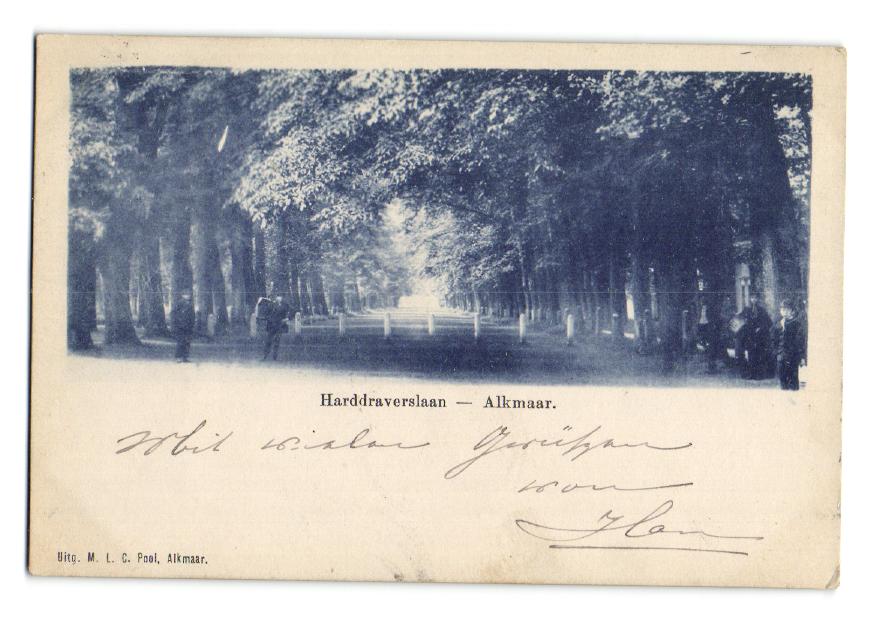 Harddraverslaan — Alkmaar.
Mit vielen Grüßen
von
Uitg. M. L. C. Pool, Alkmaar.